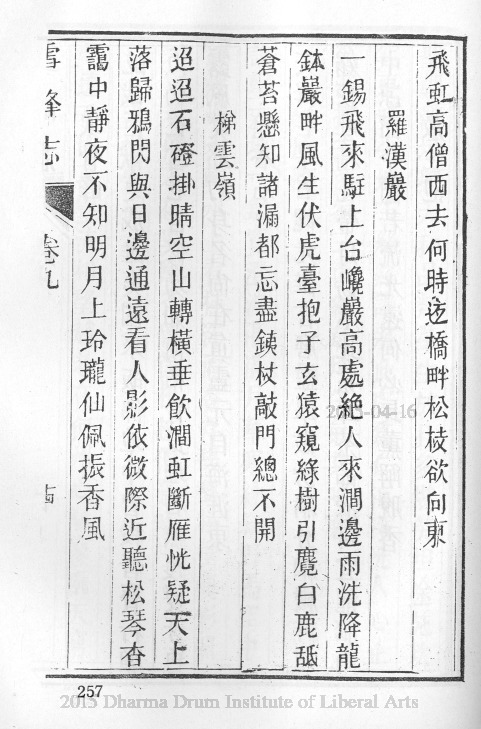 飛虹高僧西去何時迄橋畔松枝欲向東
羅漢巖
一錫飛來駐上台巉巖高處絶人來澗邊雨洗降龍
鉢巖畔風生伏虎臺抱子玄猿窺綠樹引麑白鹿䑛
蒼苔懸知諸漏都忘盡鐵杖敲門總不開
梯雲嶺
迢迢石磴掛晴空山轉橫垂飲澗虹斷雁恍疑天上
落歸鴉閃與日邊通遠看人影依微際近聽松琴杳
靄中靜夜不知明月上玲瓏仙佩振香風
雪峰志 卷九
257
2015-04-16
2015 Dharma Drum Institute of Liberal Arts